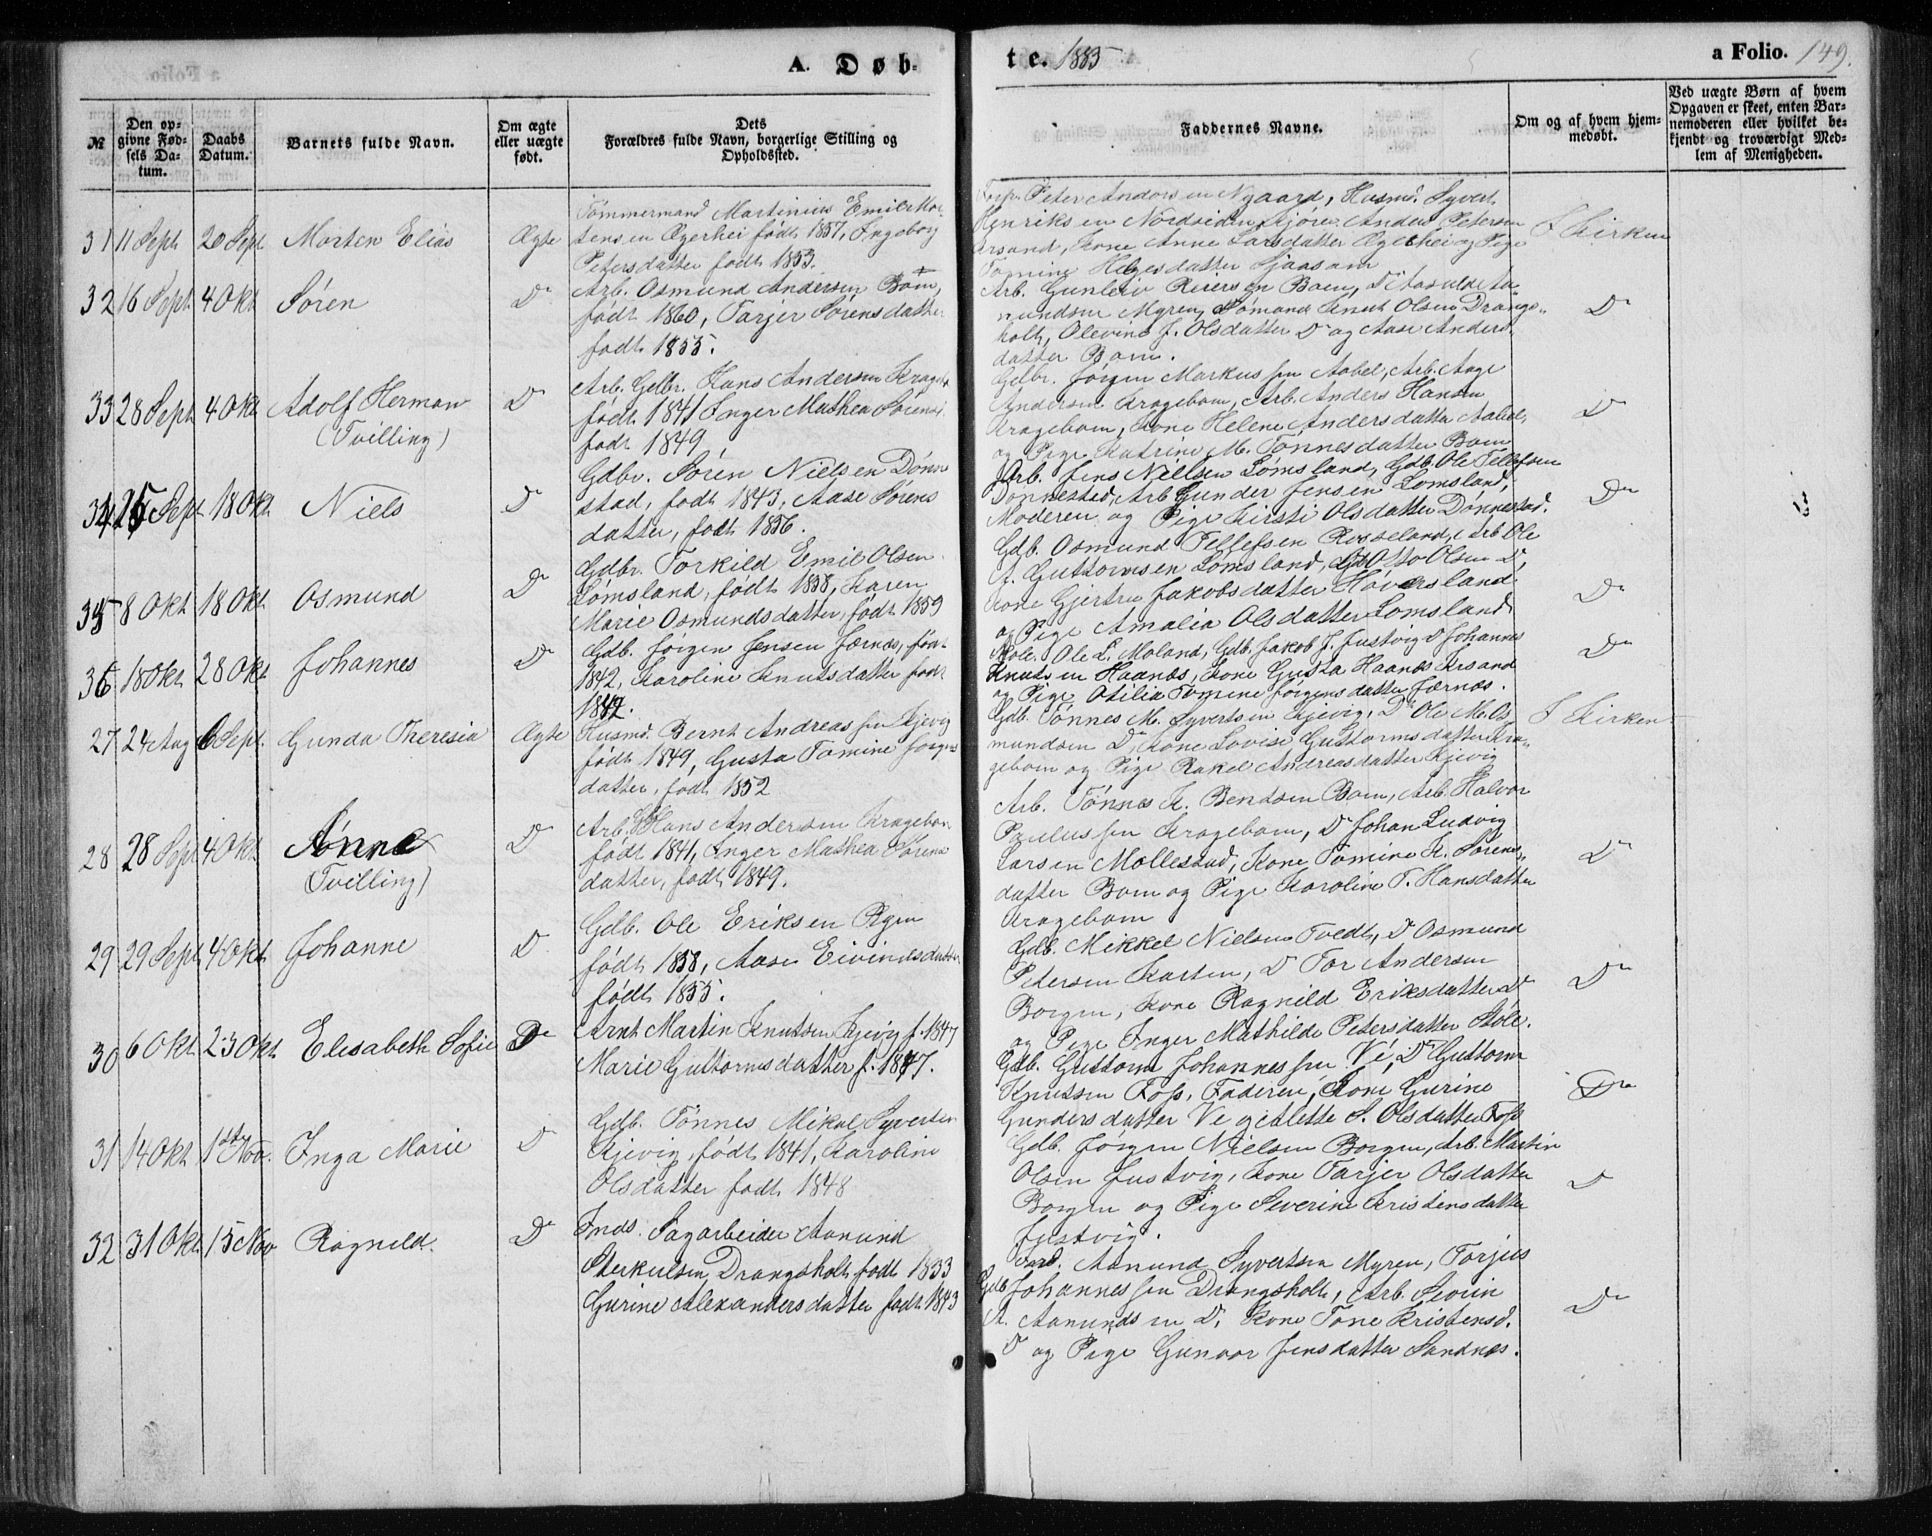 A. Døb-
te. 1885
a Folio. 149.
№
Den op-
givne Fød-
sels Da-
tum.
Daabs
Datum.
Barnets fulde Navn.
Om ægte
eller uægte
født.
Dets
Forældres fulde Navn, borgerlige Stilling og
Opholdssted.
Faddernes Navne.
Om og af hvem hjem-
medøbt.
Ved uægte Børn af hvem
Opgaven er skeet, enten Bar-
nemoderen eller hvilket be-
kjendt og troværdigt Med-
lem af Menigheden.
31 11 Sept 20 Sept Morten Elias Ægte
Tømmermand Martinius Emil Mor-
tensen Ægerhei født 1857, Ingeborg
Petersdatter født 1853.
Peter Andersen Nygaard, Husmd. Syvert
Henriksen Nordsiden, Anders Petersen
Krsand, Kone Anne Larsdatter Ægerhei og Pige
Tomine Helgesdatter
I Kirken
32 16 Sept 4 Okt Sören D
Arb. Osmund Andersen Bom,
født 1860, Tarjer Sørensdatter
født 1855.
Arb. Gunleiv Reiersen Boen, D Aasulf Aa-
mundsen Myren, Sømand Knut Olsen Drangs-
holt, Olevine J. Olsdatter D og Aase Anders-
datter Bom.
D
33 28 Sept 4 Okt Adolf Herman
(Tvilling) D
Arb. Gdbr. Hans Andersen Krageb.
født 1841 Inger Mathea Sørensd.
født 1849
Gdbr. Jørgen Markussen Aabel, Arb. Aage
Andersen Kragebom, Arb. Anders Hansen
Kragebom, Kone Helene Andersdatter Aabel,
og Pige Katrine M. Tønnesdatter Bom
D
34 25 Sept 18 Okt Niels D
Gdbr. Søren Nielsen Dønne-
stad, født 1843, Aase Sørens
datter, født 1856.
Arb. Jens Nielsen Lømsland, Gdb. Ole Tellefsen
Dønnestad, Arb Gunder Jensen Lomsland,
Moderen og Pige Kirsti Olsdatter Dønnestad.
D
35 8 Okt 18 Okt Osmund D
Gdbr. Torkild Emil Olsen
Lømsland, født 1858, Karen
Marie Osmundsdatter, født 1859
Gdb. Osmund Tellefsen Rosseland, Arb Ole
A. Guttormsen Lomsland, Otto Olsen D,
Kone Gjertru Jakobsdatter Høversland
og Pige Amalia Olsdatter Lomsland
D
36 18 Okt 28 Okt Johannes D
Gdb. Jørgen Jensen Jærnæs, født
1842, Karoline Knutsdatter født
1847.
Ole L. Moland, Gdb. Jakob J. Justvig D Johannes
Knutsen Haanæs, Kone Gusta Haanæs Krsand
og Pige Otilia Tomine Jørgensdatter Jærnæs.
D
27 24 Aug 6 Sept. Gunda Theresia Ægte
Husmd. Bernt Andreassen Kjevig
født 1849, Gusta Tomine Jørgens
datter, født 1852
Gdb. Tønnes M. Syvertsen Kjevig, D Ole M. Os-
mundsen D, Kone Lovise Guttormsdatter Kra-
gebom og Pige Rakel Andreasdatter Kjevig
I Kirken
28 28 Sept 4 Okt Sønne
(Tvilling) D
Arb. Hans Andersen Kragebom
født 1841, Inger Mathea Sørens
datter, født 1849.
Arb. Tønnes K. Bendtsen Bom, Arb. Halvor
Paulussen Kragebom, D Johan Ludvig
Larsen Mollestad, Kone Tomine K. Sørens-
datter Bom og Pige Karoline T. Hansdatter
Kragebom
D
29 29 Sept 4 Okt Johanne D
Gdb. Ole Eriksen Rgen
født 1858, Aase Eivindsdatter
født 1855.
Gdb. Mikkel Nielsen Tvedt, D Osmund
Petersen Karten, D Tor Andersen
Borgen, Kone Ragnild Eriksdatter D
og Pige Inger Mathilde Petersdatter Støle.
D
30 6 Okt 23 Okt Elisabeth Sofie D
Arnt Martin Knutsen Kjevig f. 1847
Marie Guttormsdatter f. 1847.
Gdb. Guttorm Johannessen Ve, D Guttorm
Knutsen Foss, Faderen, Kone Gurine
Gundersdatter Ve og Alette S. Olsdatter Foss
D
31 14 Okt 1st Nov. Inga Marie D
Gdb. Tönnes Mikal Syvertsen
Kjevig, født 1841, Karoline
Olsdatter født 1848
Gdb. Jørgen Nielsen Borgen, Arb. Martin
Olsen Justvig, Kone Tarjer Olsdatter
Borgen og Pige Severine Kristensdatter
Justvig.
D
32 31 Okt 15 Nov Ragnild. D
Inds. Sagarbeider Aamund
Sterkulsen Drangsholt født 1833
Gurine Alexandersdatter født 1843
Aanund Syvertsen Myren, Torjus
Gdb Johannessen Drangsholt, Arb. Sevrin
A. Aamundsen D. Kone Tone Kristensd.
D og Pige Gunvor Jensdatter Sandnes.
D